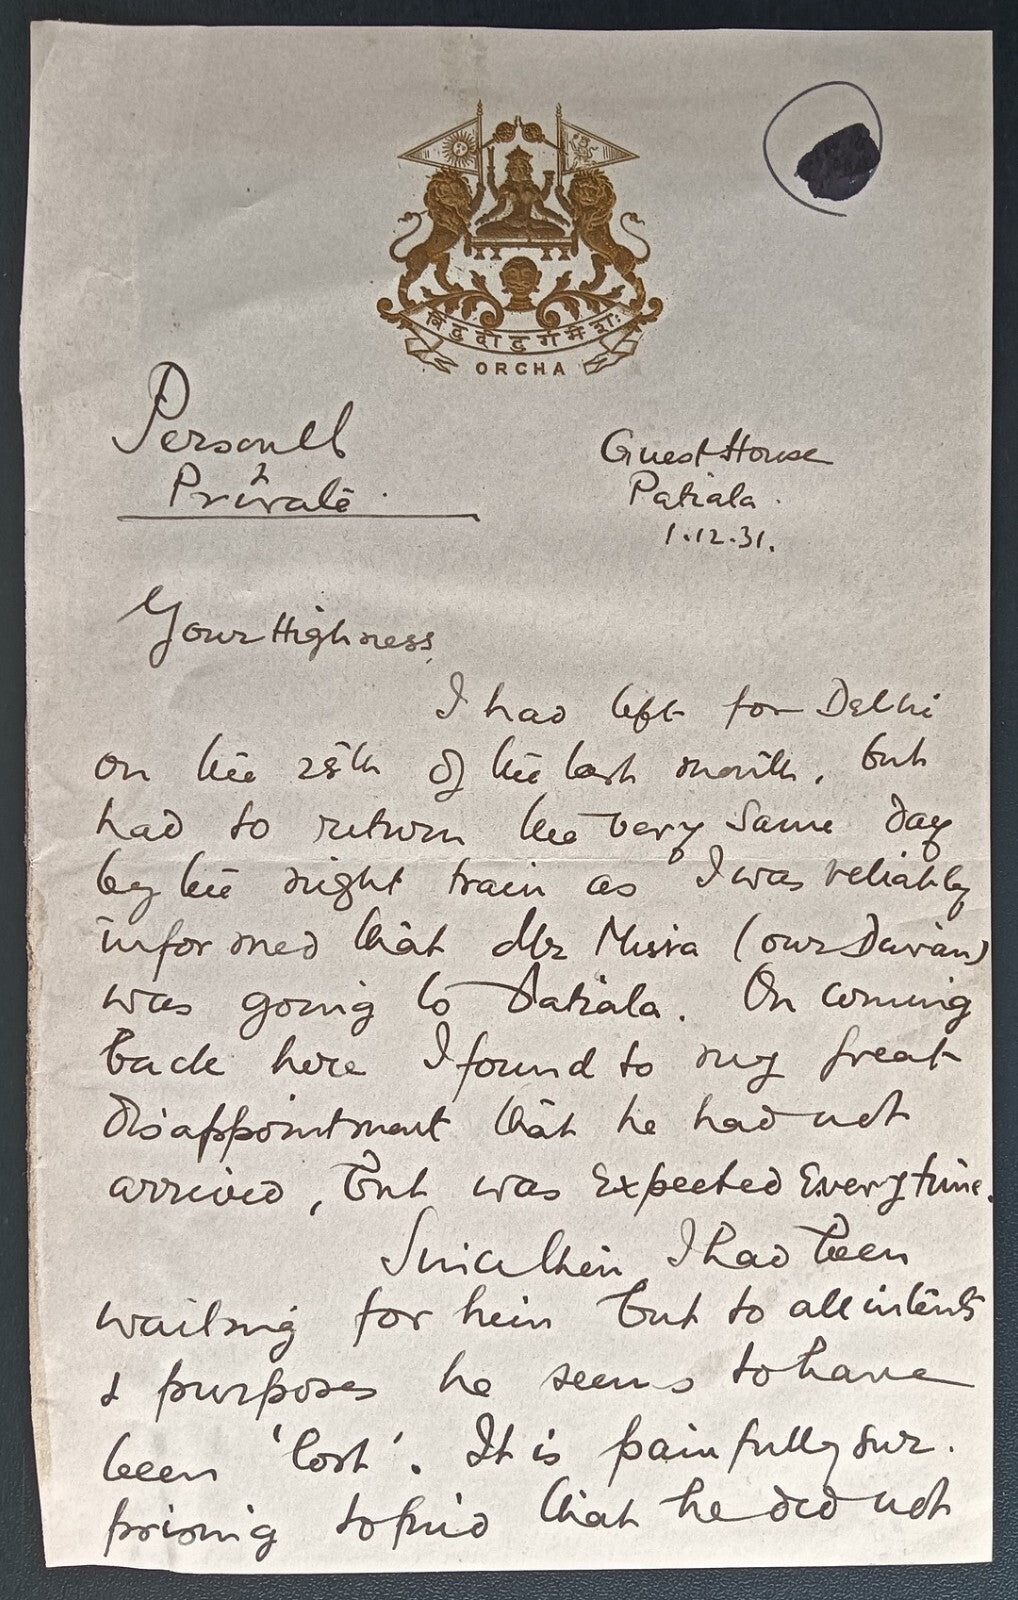 ORCHA
Personal
&
Private.
Guest House
Patiala.
1.12.31.
Your Highness,
I had left for Delhi
on the 28th of the last month, but
had to return the very same day
by the night train as I was reliably
informed that Mr Misra (our Diwan)
was going to Patiala. On coming
back here I found to my great
disappointment that he had not
arrived, but was expected every time.
Since then I had been
waiting for him but to all intents
& purposes he seems to have
been 'lost'. It is painfully sur-
prising to find that he did not